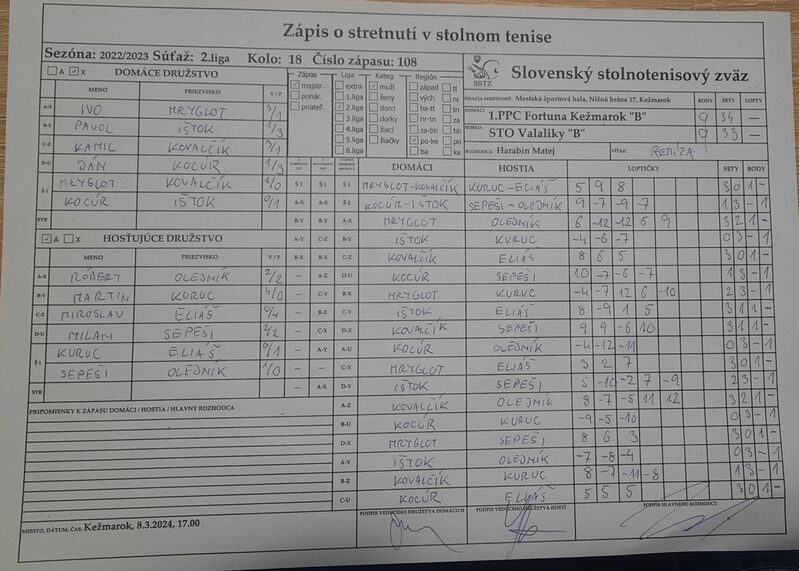 Zápis o stretnutí v stolnom tenise
Sezóna: 2022/2023 Súťaž: 2.liga Kolo: 18 Číslo zápasu: 108
SSTZ
Slovenský stolnotenisový zväz
A X DOMÁCE DRUŽSTVO
MENO PRIEZVISKO V / P
A-X IVO MRYGLOT 3/1
B-Y PAVOL IŠTOK 1/3
C-Z KAMIL KOVALČÍK 3/1
D-U JÁN KOCÚR 1/3
Š1 MRYGLOT KOVALČÍK 1/0
KOCÚR IŠTOK 0/1
STR
A X HOSŤUJÚCE DRUŽSTVO
MENO PRIEZVISKO V / P
A-X RÓBERT OLEJNÍK 2/2
B-Y MARTIN KURUC 4/0
C-Z MIROSLAV ELIÁŠ 0/4
D-U MILAN SEPEŠI 2/2
Š1 KURUC ELIÁŠ 0/1
SEPEŠI OLEJNÍK 1/0
STR
PRIPOMIENKY K ZÁPASU DOMÁCI / HOSTIA / HLAVNÝ ROZHODCA
MIESTO, DÁTUM, ČAS: Kežmarok, 8.3.2024, 17.00
Zápas
majstr.
pohár.
priateľ.
Liga
extra
1.liga
2.liga
3.liga
4.liga
5.liga
6.liga
Kateg.
muži
ženy
dorci
dorky
žiaci
žiačky
Región
západ tt
vých. nr
ba-tt tn
nr-tn za
za-bb bb
po-ke po
ba ke
HRACIA MIESTNOSŤ: Mestská športová hala, Nižná brána 17, Kežmarok BODY SETY LOPTY
DOMÁCI 1.PPC Fortuna Kežmarok "B" 9 34 –
HOSTIA STO Valaliky "B" 9 33 –
ROZHODCA: Harabin Matej VÍŤAZ: REMÍZA
DOMÁCI HOSTIA LOPTIČKY SETY BODY
Š1 Š1 Š1 MRYGLOT-KOVALČÍK KURUC-ELIÁŠ 5 9 8 3 0 1 -
A-X A-X Š2 KOCÚR-IŠTOK SEPEŠI-OLEJNÍK 9 -7 -9 -7 1 3 - 1
B-Y B-Y A-X MRYGLOT OLEJNÍK 6 -12 -12 5 9 3 2 1 -
A-Y C-Z B-Y IŠTOK KURUC -4 -6 -7 0 3 - 1
B-X B-X C-Z KOVALČÍK ELIÁŠ 8 6 5 3 0 1 -
– A-Z D-U KOCÚR SEPEŠI 10 -7 -6 -7 1 3 - 1
– C-Y B-X MRYGLOT KURUC -4 -7 12 6 -10 2 3 - 1
– B-Z C-Y IŠTOK ELIÁŠ 8 -9 1 5 3 1 1 -
– C-X D-Z KOVALČÍK SEPEŠI 9 9 -6 10 3 1 1 -
– A-Y A-U KOCÚR OLEJNÍK -4 -12 -11 0 3 - 1
– – C-X MRYGLOT ELIÁŠ 3 2 7 3 0 1 -
– A-X D-Y IŠTOK SEPEŠI 5 -10 -2 7 -9 2 3 - 1
A-Z KOVALČÍK OLEJNÍK 8 -7 -5 11 12 3 2 1 -
B-U KOCÚR KURUC -9 -5 -10 0 3 - 1
D-X MRYGLOT SEPEŠI 8 6 3 3 0 1 -
A-Y IŠTOK OLEJNÍK -7 -8 -4 0 3 - 1
B-Z KOVALČÍK KURUC 8 -7 -11 -8 1 3 - 1
C-U KOCÚR ELIÁŠ 5 5 5 3 0 1 -
PODPIS VEDÚCEHO DRUŽSTVA DOMÁCICH PODPIS VEDÚCEHO DRUŽSTVA HOSTÍ PODPIS HLAVNÉHO ROZHODCU